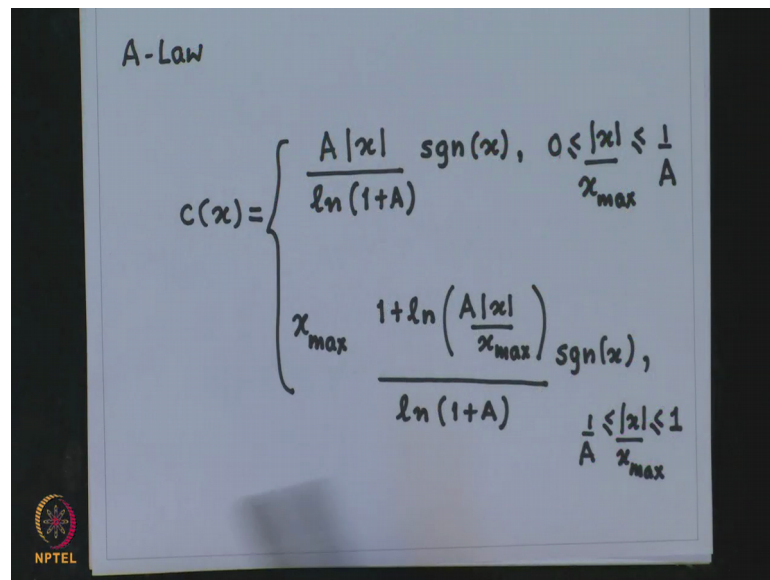 A-Law
c(x) = { A|x| / ln(1+A) sgn(x), 0 ≤ |x|/x_max ≤ 1/A
x_max 1+ln(A|x|/x_max) / ln(1+A) sgn(x),
1/A ≤ |x|/x_max ≤ 1
NPTEL